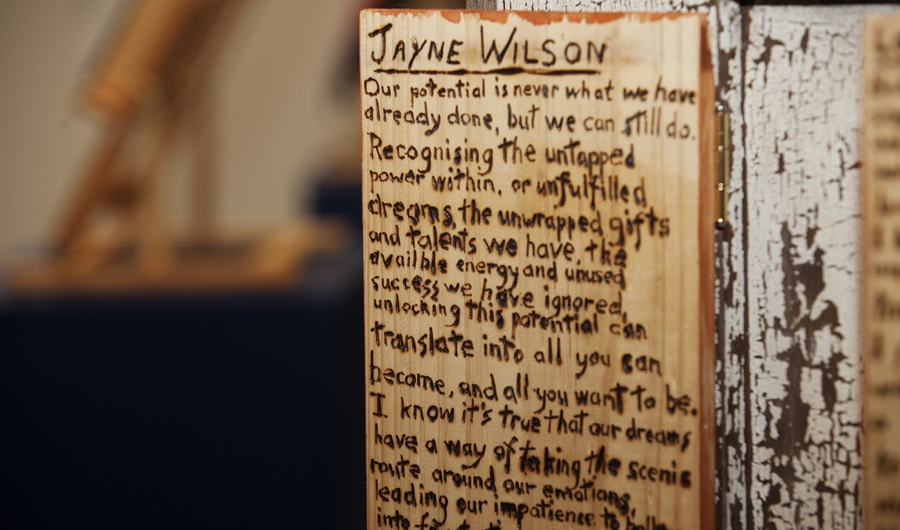 JAYNE WILSON
Our potential is never what we have
already done, but we can still do.
Recognising the untapped
power within, or unfulfilled
dreams, the unwrapped gifts
and talents we have, the
availble energy and unused
success we have ignored,
unlocking this potential can
translate into all you can
become, and all you want to be.
I know it's true that our dreams
have a way of taking the scenic
route around our emotions,
leading our impatience to
into